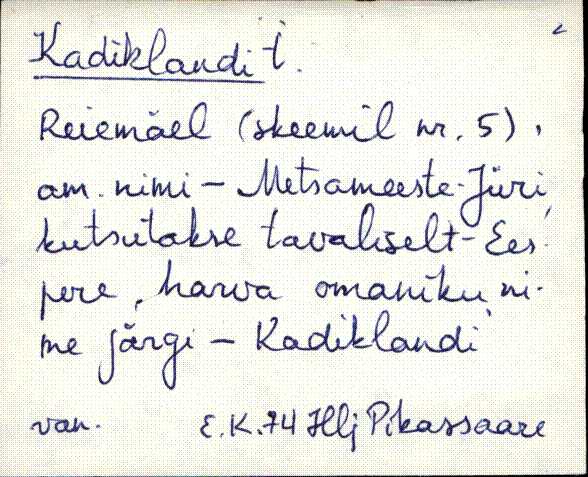 Kadiklandi t.
Reiemäel (skeemil nr. 5).
am. nimi - Metsameeste-Jüri,
kutsutakse tavaliselt - Ees-
pere, harva omaniku ni-
me järgi - Kadiklandi
van. E.K. 74 Hlj Pikassaare